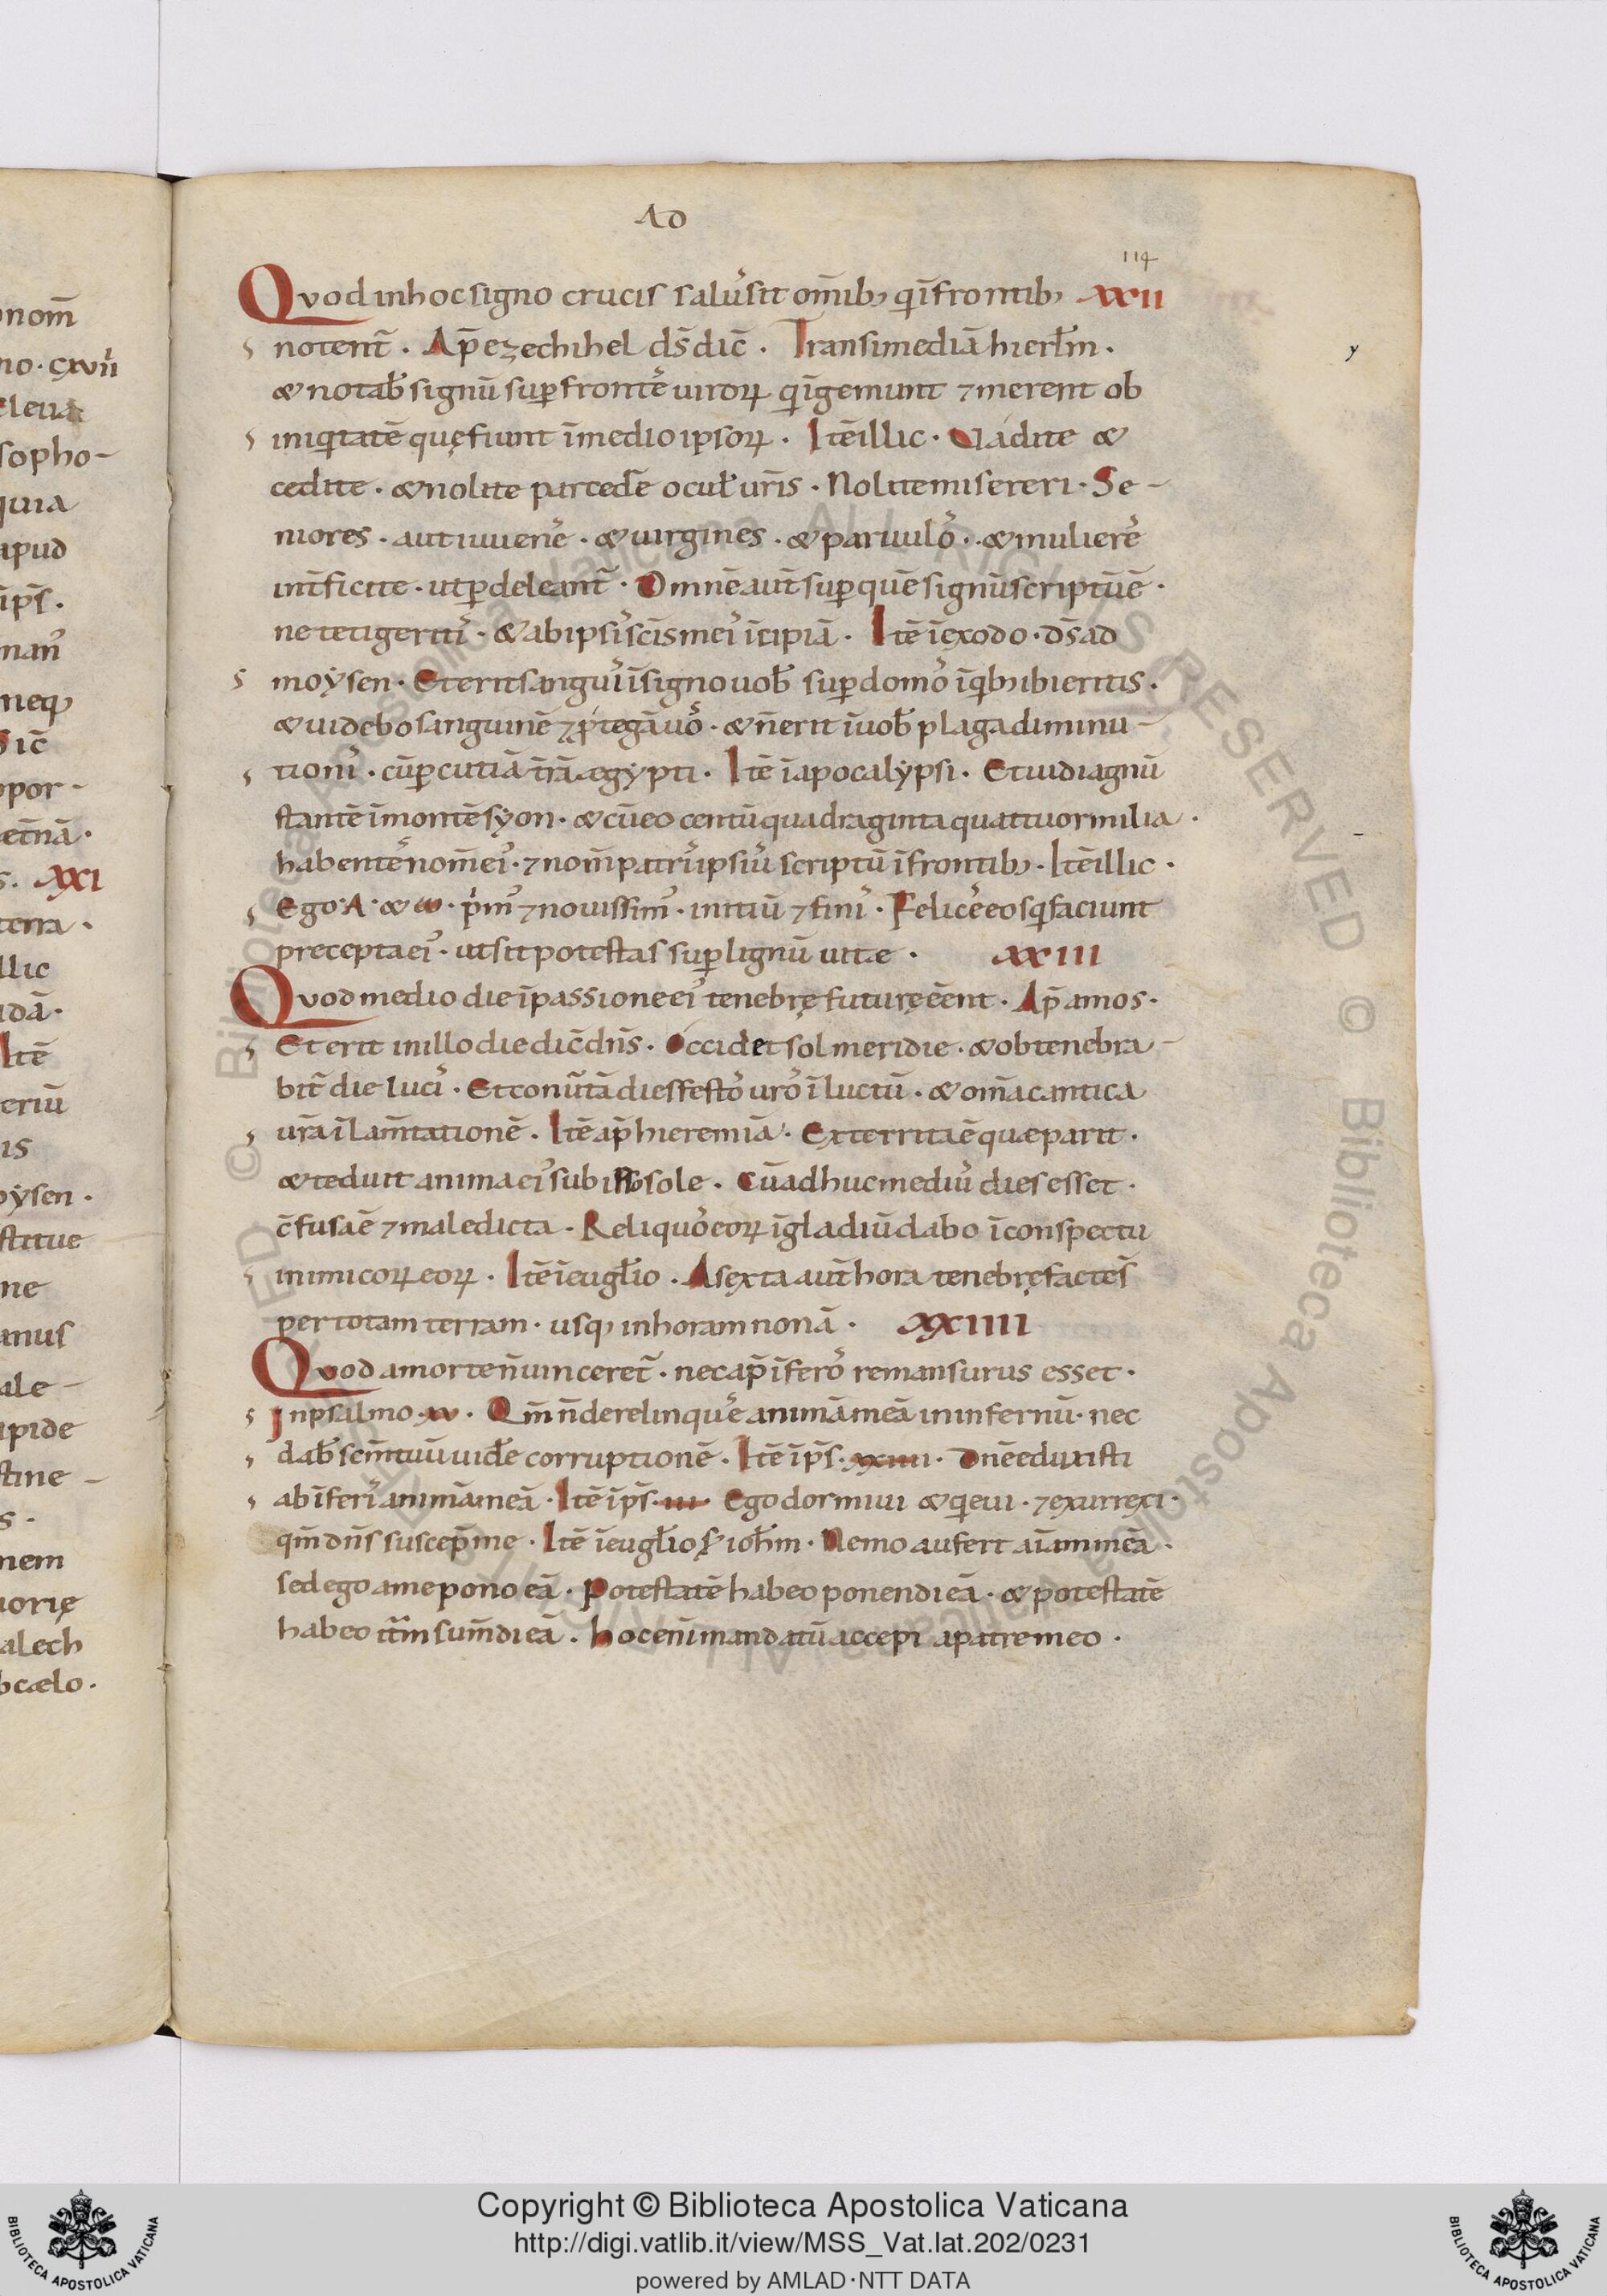 AD
114
Quod in hoc signo crucis salus̉ sit om̄ib; q̄i frontib; XXII
notent̄ . Ap̄ ezechihel ds̄ dic̄ . Transi mediā hierłm .
& notab̄ signū sup frontē uiroꝝ qī gemunt ⁊ merent ob
iniqtatē quę fiunt ī medio ipsoꝝ . Itē illic . Vadite &
cedite . & nolite parcedē ocuł urīs . Nolite misereri . Se-
niores . aut iuuene᷒ . & uirgines . & paruulo᷒ . & muliere᷒
int̄ficite . ut ꝑdeleant̄ . Omnē aut̄ sup quē signū scriptū ē .
ne tetigeriti᷒ . & ab ipsi᷒ scīs mei᷒ īcipiā . Itē ī exodo . ds̄ ad
moẏsen . Et erit sangui᷒ ī signo uob̄ sup domo᷒ ī qb; ibi eritis .
& uidebo sanguinē ⁊ ꝓtegā uo᷒ . & n̄ erit ī uob̄ plaga diminu-
tioni᷒ . cū ꝑcutiā tr̄ā ægypti . Itē ī apocalẏpsi . Et uidi agnū
stantē ī montē sẏon . & cū eo centū quadraginta quattuor milia .
habente᷒ nom̄ ei᷒ . ⁊ nom̄ patri᷒ ipsiu᷒ scriptū ī frontib; . Itē illic .
Ego . A . & ω . p̍m᷒ ⁊ nouissim᷒ . initiū ⁊ fini᷒ . Felice᷒ eos q faciunt
precepta ei᷒ . ut sit potestas sup lignū uitæ . XXIII
Quod medio die ī passione ei᷒ tenebrę futurę eēnt . Ap̄ amos .
Et erit in illo die dic̄ dn̄s . Occidet sol meridie . & obtenebra-
bit̄ die᷒ luci᷒ . Et conu̅tā dies festo᷒ uro᷒ ī luctū . & om̄a cantica
ur̄a ī lam̄tationē . Itē ap̄ hieremiā . Exterrita ē quæ parit .
& teduit anima ei᷒ subiit sole . Cū adhuc mediu᷒ dies esset .
c̄fusa ē ⁊ maledicta . Reliquo᷒ eoꝝ ī gladiū dabo ī conspectu
inimicoꝝ eoꝝ . Itē ī eugłio . A sexta aut̄ hora tenebrę facte s̄
per totam terram . usq; in horam nonā . XXIIII
Quod a morte n̄ uinceret̄ . nec ap̄ īfero᷒ remansurus esset .
In psalmo . XV . Qm̄ n̄ derelinque᷒ animā meā in infernū . nec
dab̄ scm̄ tuū uidē corruptionē . Itē ī ps̄ . XXVIIII . Dn̄e eduxisti
ab īferi᷒ animā meā . Itē ī ps̄ . III . Ego dormiui & qeui . ⁊ exurrexi .
qm̄ dn̄s suscep̄ me . Itē ī eugłio s̄ iohm̄ . Nemo aufert aīam meā .
sed ego a me pono eā . Potestatē habeo ponendi eā . & potestatē
habeo itm̄ sum̄di eā . Hoc enī mandatū accepi a patre meo .
Copyright © Biblioteca Apostolica Vaticana
http://digi.vatlib.it/view/MSS_Vat.lat.202/0231
powered by AMLAD·NTT DATA